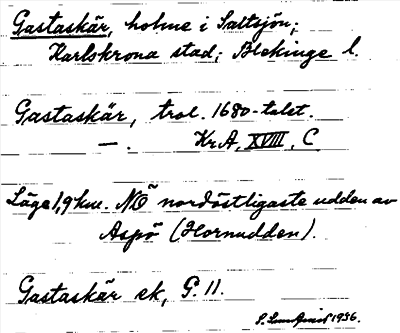 Gastaskär, holme i Saltsjön;
Karlskrona stad; Blekinge l.
Gastaskär, trol. 1680-talet.
—. KrA, XVIII, C
Läge 1,9 km. NÖ nordöstligaste udden av
Aspö (Hornudden).
Gastaskär ek, G. 11.
1936.